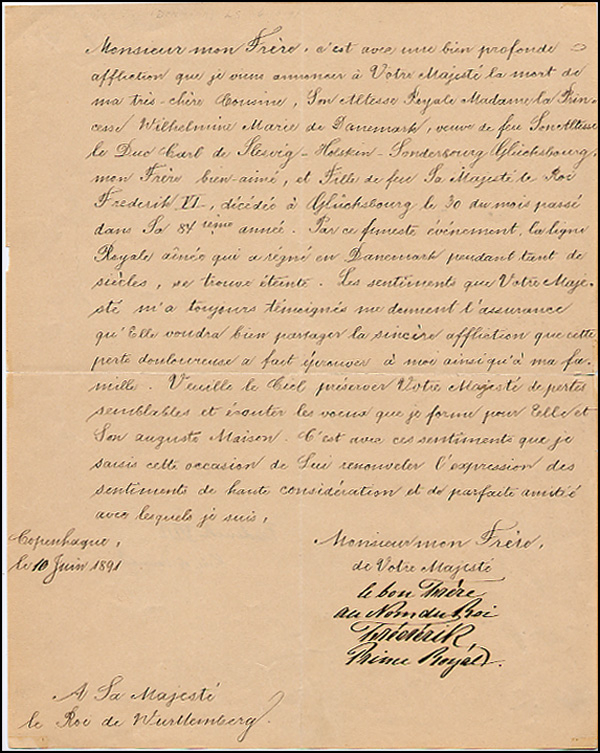 Monsieur mon Frère, c'est avec une bien profonde
affliction que je viens annoncer à Votre Majesté la mort de
ma très-chère Cousine, Son Altesse Royale Madame la Prin-
cesse Wilhelmine Marie de Danemark, veuve de feu Son Altesse
le Duc Carl de Slesvig-Holstein-Sonderbourg Glücksbourg,
mon Frère bien-aimé, et Fille de feu Sa Majesté le Roi
Frederik VI, décédée à Glücksbourg le 30 du mois passé
dans Sa 84 ième année. Par ce funeste événement, la ligne
Royale aînée qui a régné en Danemark pendant tant de
siècles, se trouve éteinte. Les sentiments que Votre Maje-
sté m'a toujours témoignés me donnent l'assurance
qu'Elle voudra bien partager la sincère affliction que cette
perte douloureuse a fait éprouver à moi ainsi qu'à ma fa-
mille. Veuille le Ciel préserver Votre Majesté de pertes
semblables et écouter les voeux que je forme pour Elle et
Son auguste Maison. C'est avec ces sentiments que je
saisis cette occasion de Lui renouveler l'expression des
sentiments de haute considération et de parfaite amitié
avec lesquels je suis,
Copenhague,
le 10 Juin 1891
Monsieur mon Frère,
de Votre Majesté
le bon Frère
au Nom du Roi
Fréderik
Prince Royal.
A Sa Majesté
le Roi de Wurttemberg.